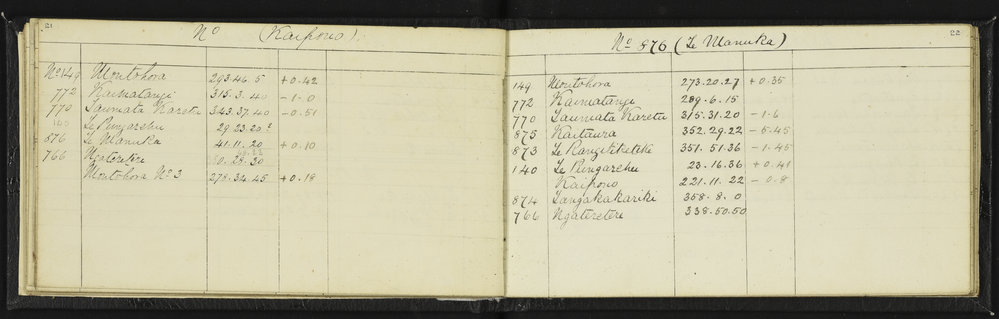 21
No (Kaipono)
No 149 Moutohora 293.46.5 +0.42
772 Kaimatangi 315.3.40 -1.0
770 Taumata Karetu 343.37.40 -0.51
140 Te Pungarehu 29.23.20?
876 Te Manuka 41.11.20 +0.10
766 Ngateretere 28.30
Moutohora No 3 278.34.45 +0.18
22
No 876 (Te Manuka)
149 Moutohora 273.20.27 +0.35
772 Kaimatangi 289.6.15
770 Taumata Karetu 315.31.20 -1.6
875 Kaitaura 352.29.22 -5.45
873 Te Rangitiketike 351.51.36 -1.45
140 Te Pungarehu 23.16.36 +0.41
Kaipono 221.11.22 -0.8
874 Tangakakariki 358.8.0
766 Ngateretere 338.50.50